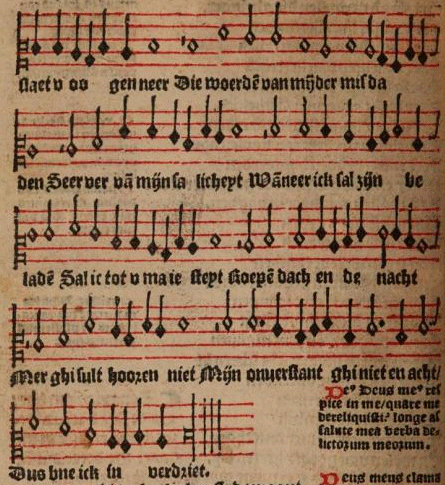 slaet v oo gen neer Die woerdē van mijder mis da
den Seer ver vā mijn sa licheyt Wāneer ick sal zijn be
ladē Sal ic tot v ma ie steyt Roepē dach en de nacht
Mer ghi sult hooren niet Mijn onverstant ghi niet en acht/
Dus bne ick in verdriet.
De⁹ Deus me⁹ res
pice in me/quare me
dereliquisti: longe a
salute mea verba de-
lictorum meorum.
Deus meus clama